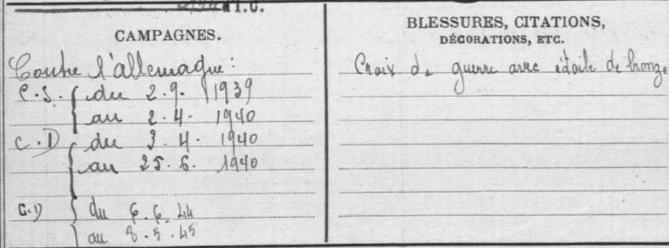 CAMPAGNES.
Contre l'Allemagne :
C.S. du 2.9. 1939
au 2.4. 1940
C.D du 3.4. 1940
au 25.6. 1940
C.D du 6.6.44
au 8.5.45
BLESSURES, CITATIONS,
DÉCORATIONS, ETC.
Croix de guerre avec étoile de bronze